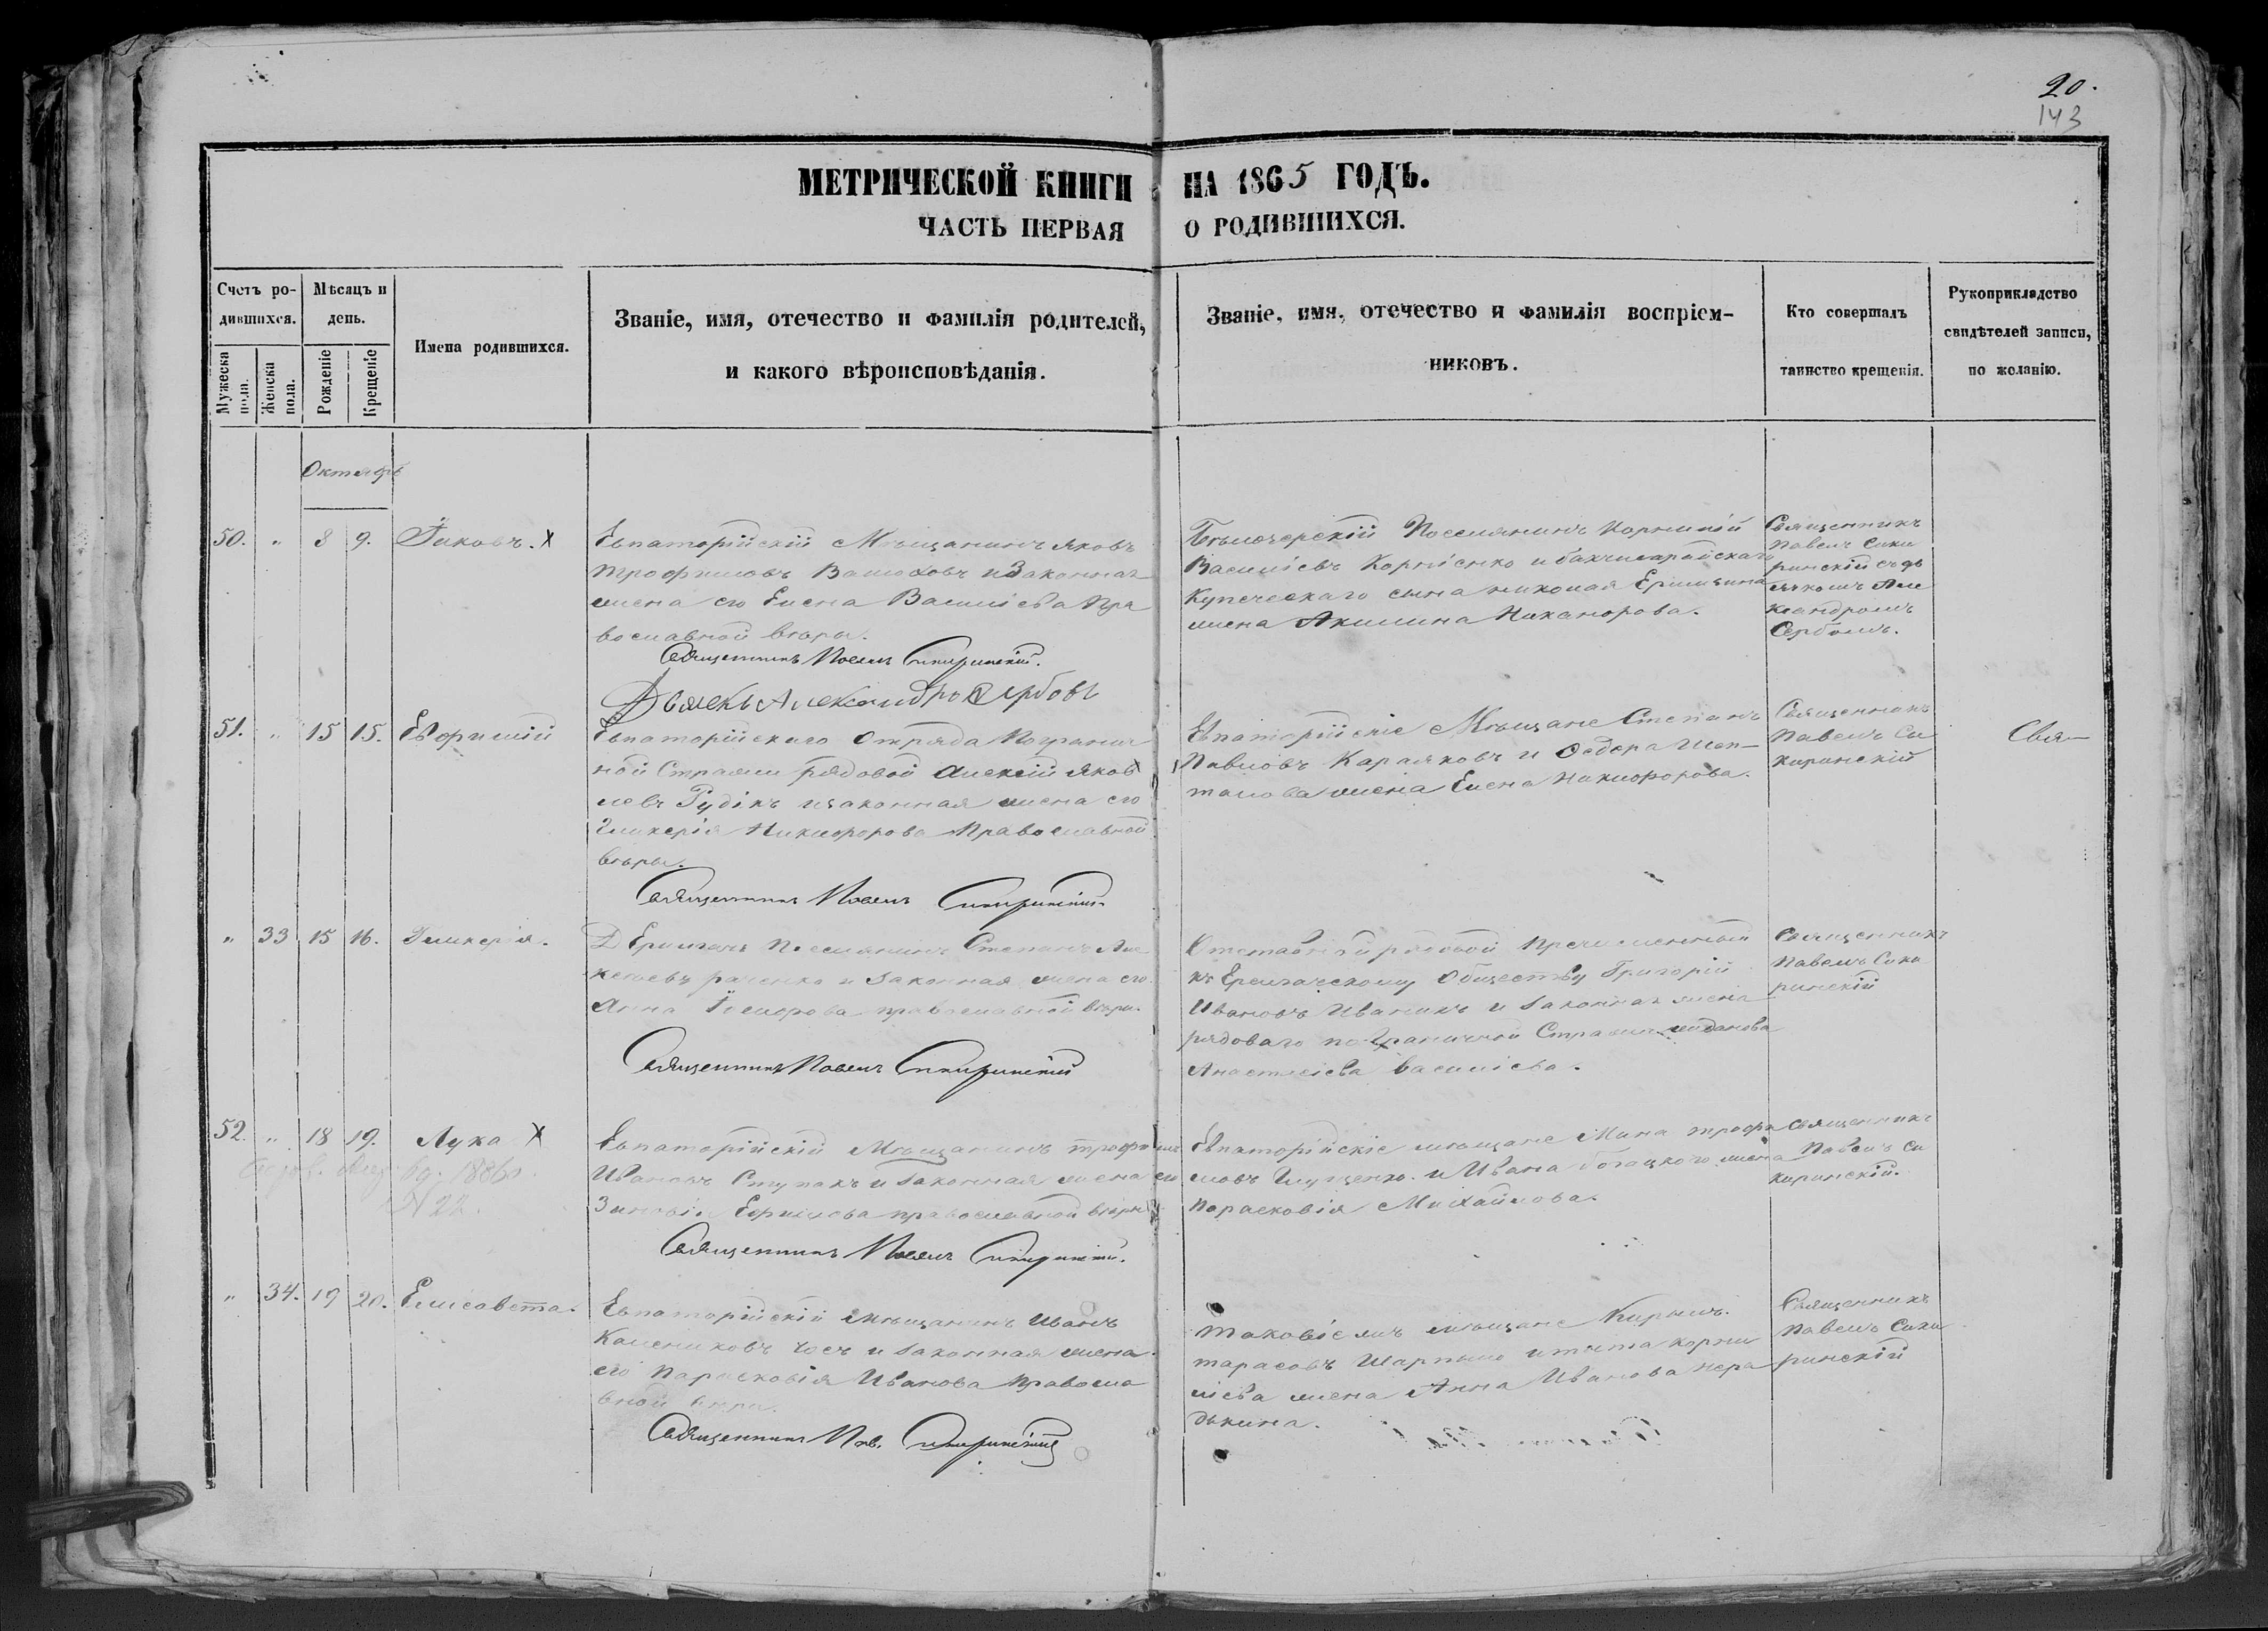 20.
143
МЕТРИЧЕСКОЙ КНИГИ НА 1865 ГОДЪ.
ЧАСТЬ ПЕРВАЯ О РОДИВШИХСЯ.
Счетъ родившихся.
Мужеска пола.
Женска пола.
Мѣсяцъ и день.
Рожденіе
Крещеніе
Имена родившихся.
Званіе, имя, отечество и фамилія родителей,
и какого вѣроисповѣданія.
Званіе, имя, отечество и фамилія воспріем-
никовъ.
Кто совершалъ
таинство крещенія.
Рукоприкладство
свидѣтелей записи,
по желанію.
Октябрь
50. " 8 9. Іаковъ. X
Евпаторійскій Мѣщанинъ Яковъ
Трофимовъ и законная
жена его Елена Василіева Пра
вославной вѣры.
Священникъ Павелъ Сикиринскій.
Дьячекъ Александръ Сербовъ
Поселянинъ Корнилій
Василіевъ Корніенко и бахчисарайскаго
Купеческаго сына Николая
жена Акилина Никанорова.
Священникъ
Павелъ Сики
ринскій съ дь
ячкомъ Але
ксандромъ
Сербомъ.
51. " 15 15. Евфимій
Евпаторійскаго Отряда Погранич
ной Стражи Рядовой Алексій Яков
левъ Рудікъ и законная жена его
Гликерія Никифорова Православной
вѣры.
Священникъ Павелъ Сикиринскій.
Евпаторійскіе Мѣщане Степанъ
Павловъ Караяковъ и Ѳедора Шап-
талова жена Елена Никифорова.
Священникъ
Павелъ Си
киринскій
Свя-
" 33 15 16. Гликерія.
Д Ермичи Поселянинъ Степанъ Але
ксѣевъ и законная жена его
Анна православной вѣры.
Священникъ Павелъ Сикиринскій
Отставной рядовой причисленный
къ Обществу Григорій
Ивановъ Иваникъ и законная жена
рядоваго пограничной Стражи
Анастасіева Василіева.
Священникъ
Павелъ Сики
ринскій
52. " 18 19. Лука X
1886
№ 22.
Евпаторійскій Мѣщанинъ Трофимъ
Ивановъ Ступакъ и законная жена его
Зиновія Ефимова православной вѣры
Священникъ Павелъ Сикиринскій.
Евпаторійскіе мѣщане Мина Трофи
мовъ Глущенко и Ивана Богацкого жена
Парасковія Михайлова.
Священникъ
Павелъ Си
киринскій.
" 34. 19 20. Елисавета.
Евпаторійскій мѣщанинъ Иванъ
и законная жена
его Парасковія Иванова Правосла
вной вѣры.
Священникъ Пав. Сикиринскій
Таковіе жъ мѣщане Кирилъ
Тарасовъ Шарпыло и Тита Корни
ліева жена Анна Иванова
Священникъ
Павелъ Сики
ринскій